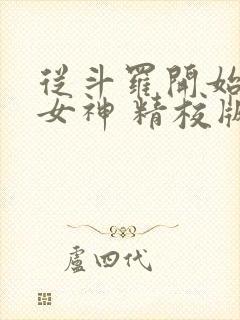 從斗羅開始
女神 精校版
盧四代